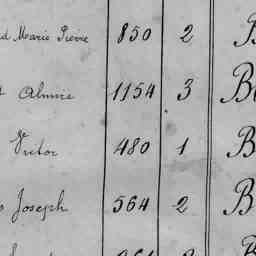 Marie Pierre 850 2 B
1154 3 B
Victor 480 1 B
Joseph 564 2 B